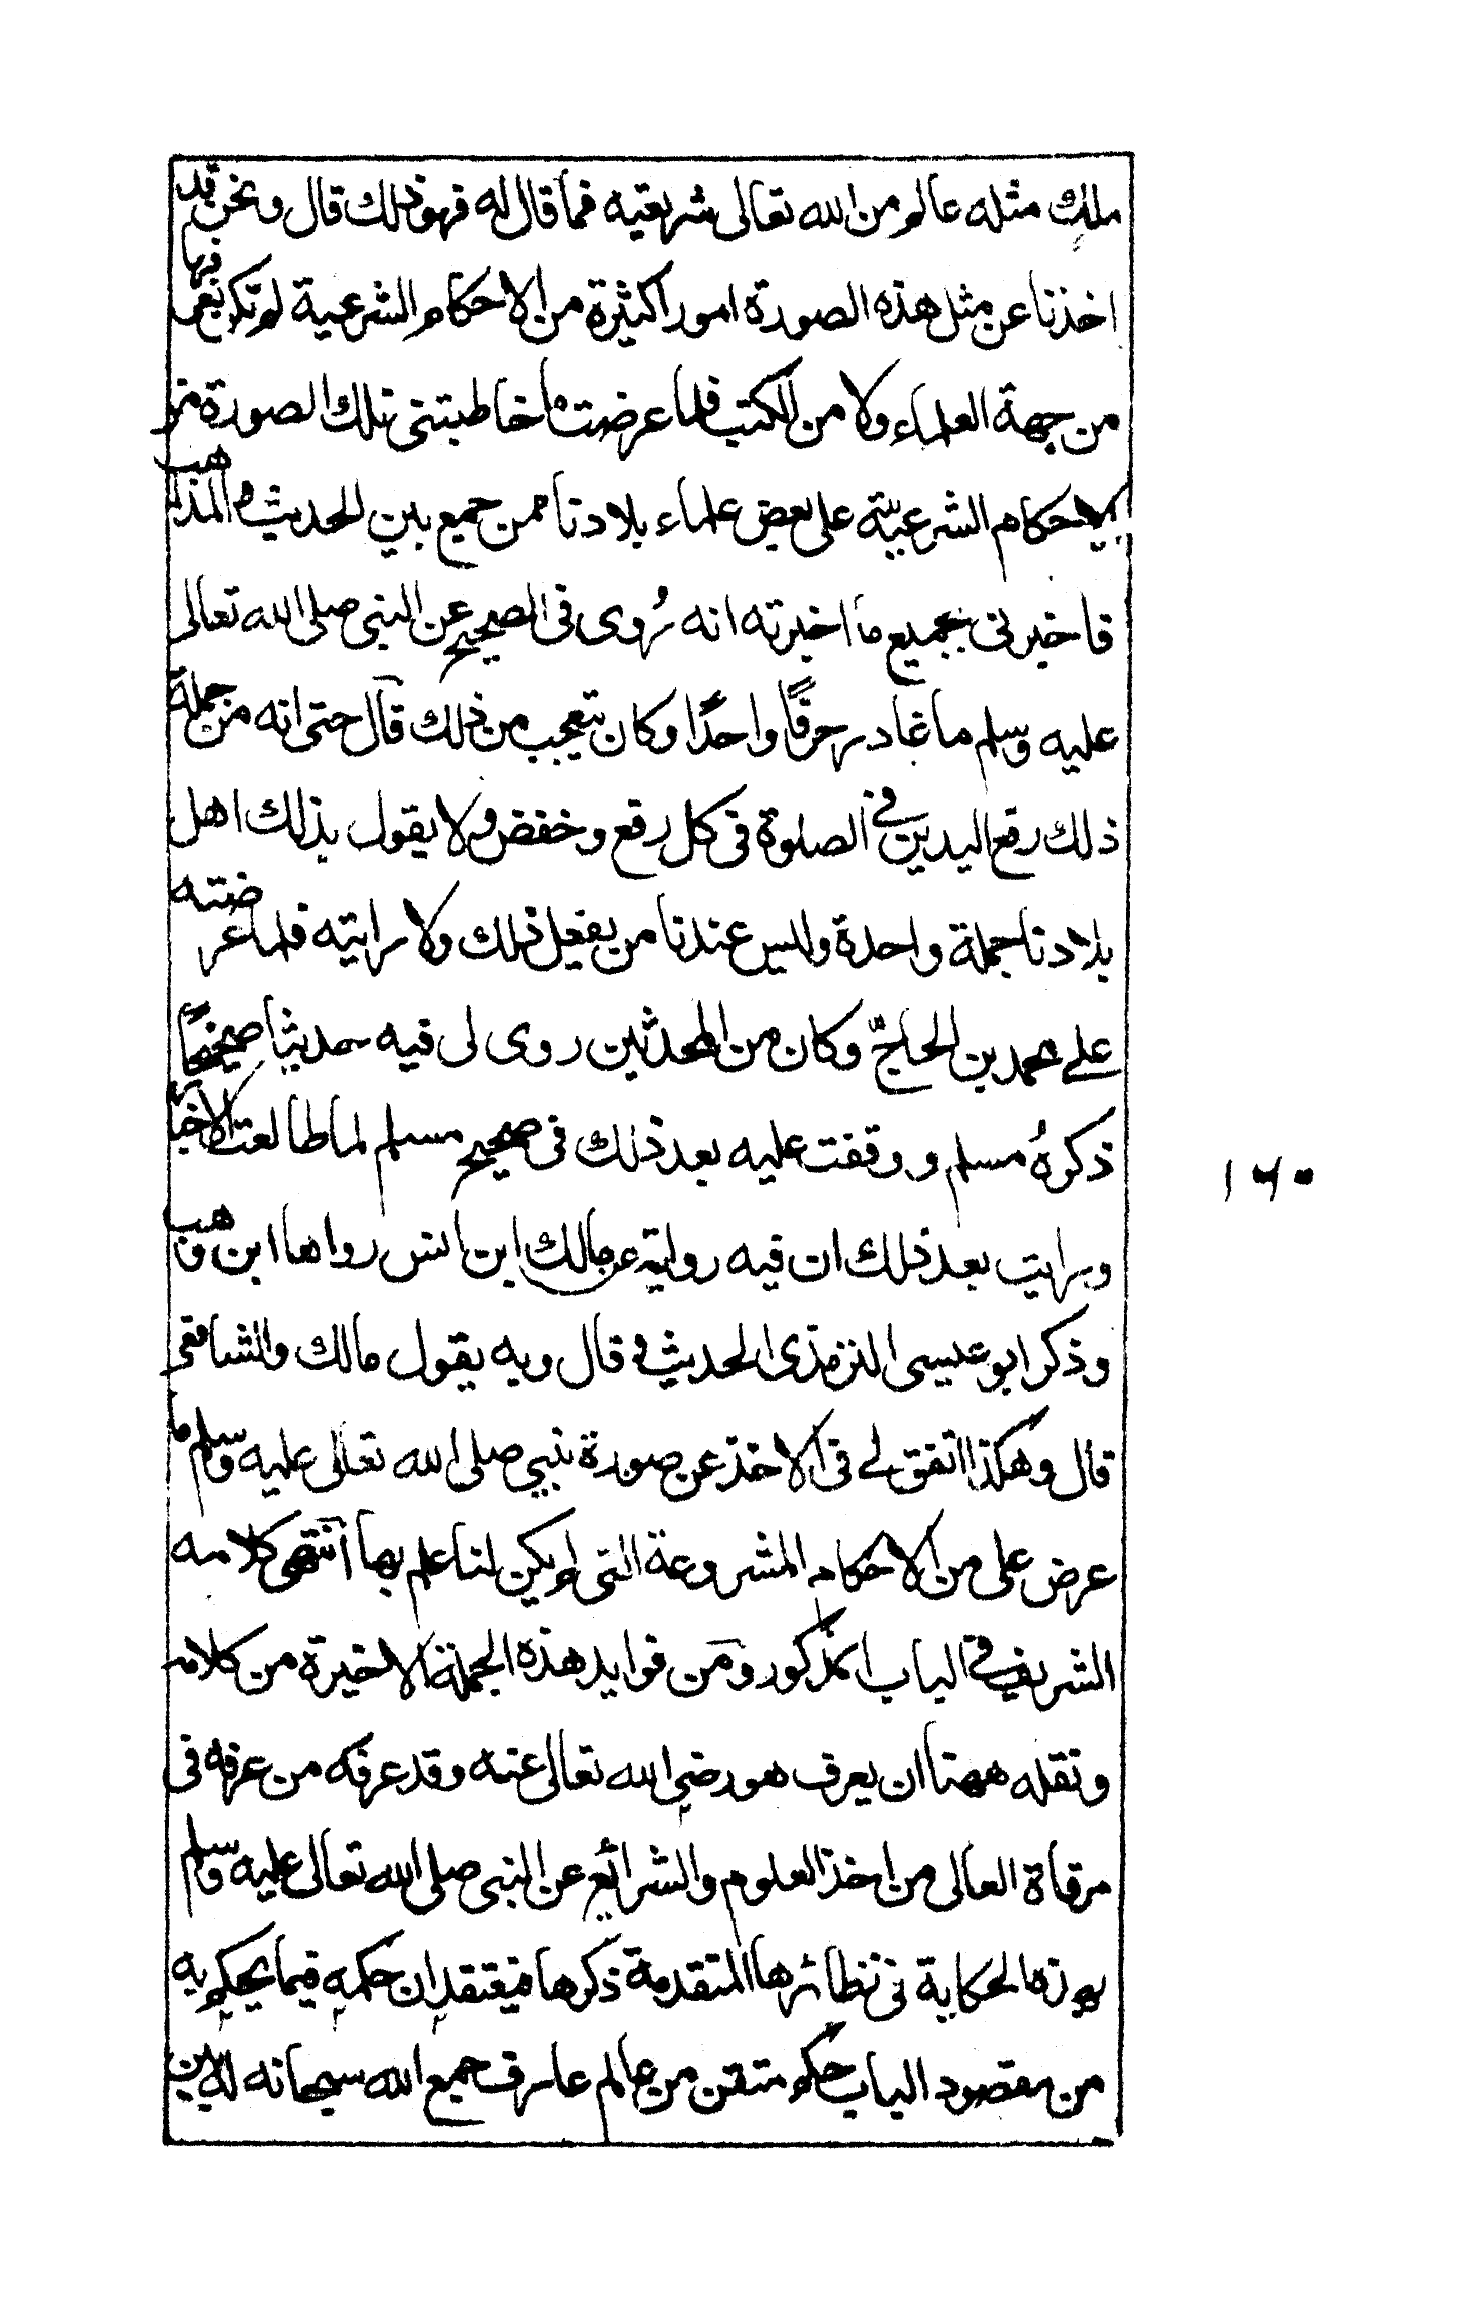 ملك مثله عالم من الله تعالى شريعتيه فما قال له فهو ذلك قال ونحن قد
اخذنا عن مثل هذه الصورة امورا كثيرة من الاحكام الشرعية لم نكن نعرفها
من جهة العلماء ولا من الكتب فلما عرضت ما خاطبتنى تلك الصورة من
الاحكام الشرعيّة على بعض علماء بلادنا ممن جمع بين الحديث والمذاهب
فاخبرنى بجميع ما اخبرته انه رُوى فى الصحيح عن النبى صلى الله تعالى
عليه وسلم ما غادر حرفًا واحدًا وكان يتعجب من ذلك قال حتى انه من جملة
ذلك رفع اليدين فى الصلوة فى كل رفع وخفض ولا يقول بذلك اهل
بلادنا جملة واحدة وليس عندنا من يفعل ذلك ولا رايته فلما عرضته
على محمد بن الحاجّ وكان من المحدثين روى لى فيه حديثا صحيحًا
ذكرهُ مسلم ووقفت عليه بعد ذلك فى صحيح مسلم لما طالعت الاخبار
ورايت بعد ذلك ان فيه رواية عن مالك ابن انس رواها ابن وهب
وذكر ابو عيسى الترمذى الحديث و قال وبه يقول مالك والشافعى
قال وهكذا اتفق لے فى الاخذ عن صورة نبيى صلى الله تعالى عليه وسلم ما
عرض على من الاحكام المشروعة التى لم يكن لنا علم بها انتهى كلامه
الشريف فى الباب المذكور ومن فوايد هذه الجملة الاخيرة من كلامه
ونقله ههنا ان يعرف هو رضى الله تعالى عنه وقد عرفه من عرفه فى
مرقاة العالى من اخذ العلوم والشرائع عن النبى صلى الله تعالى عليه وسلم
بهذه الحكاية فى نظائرها المتقدمة ذكرها فيعتقد ان حكمه فيما يحكم به
من مقصود الباب حكم متقن من عالم عارف جمع الله سبحانه له بين
١٦٠